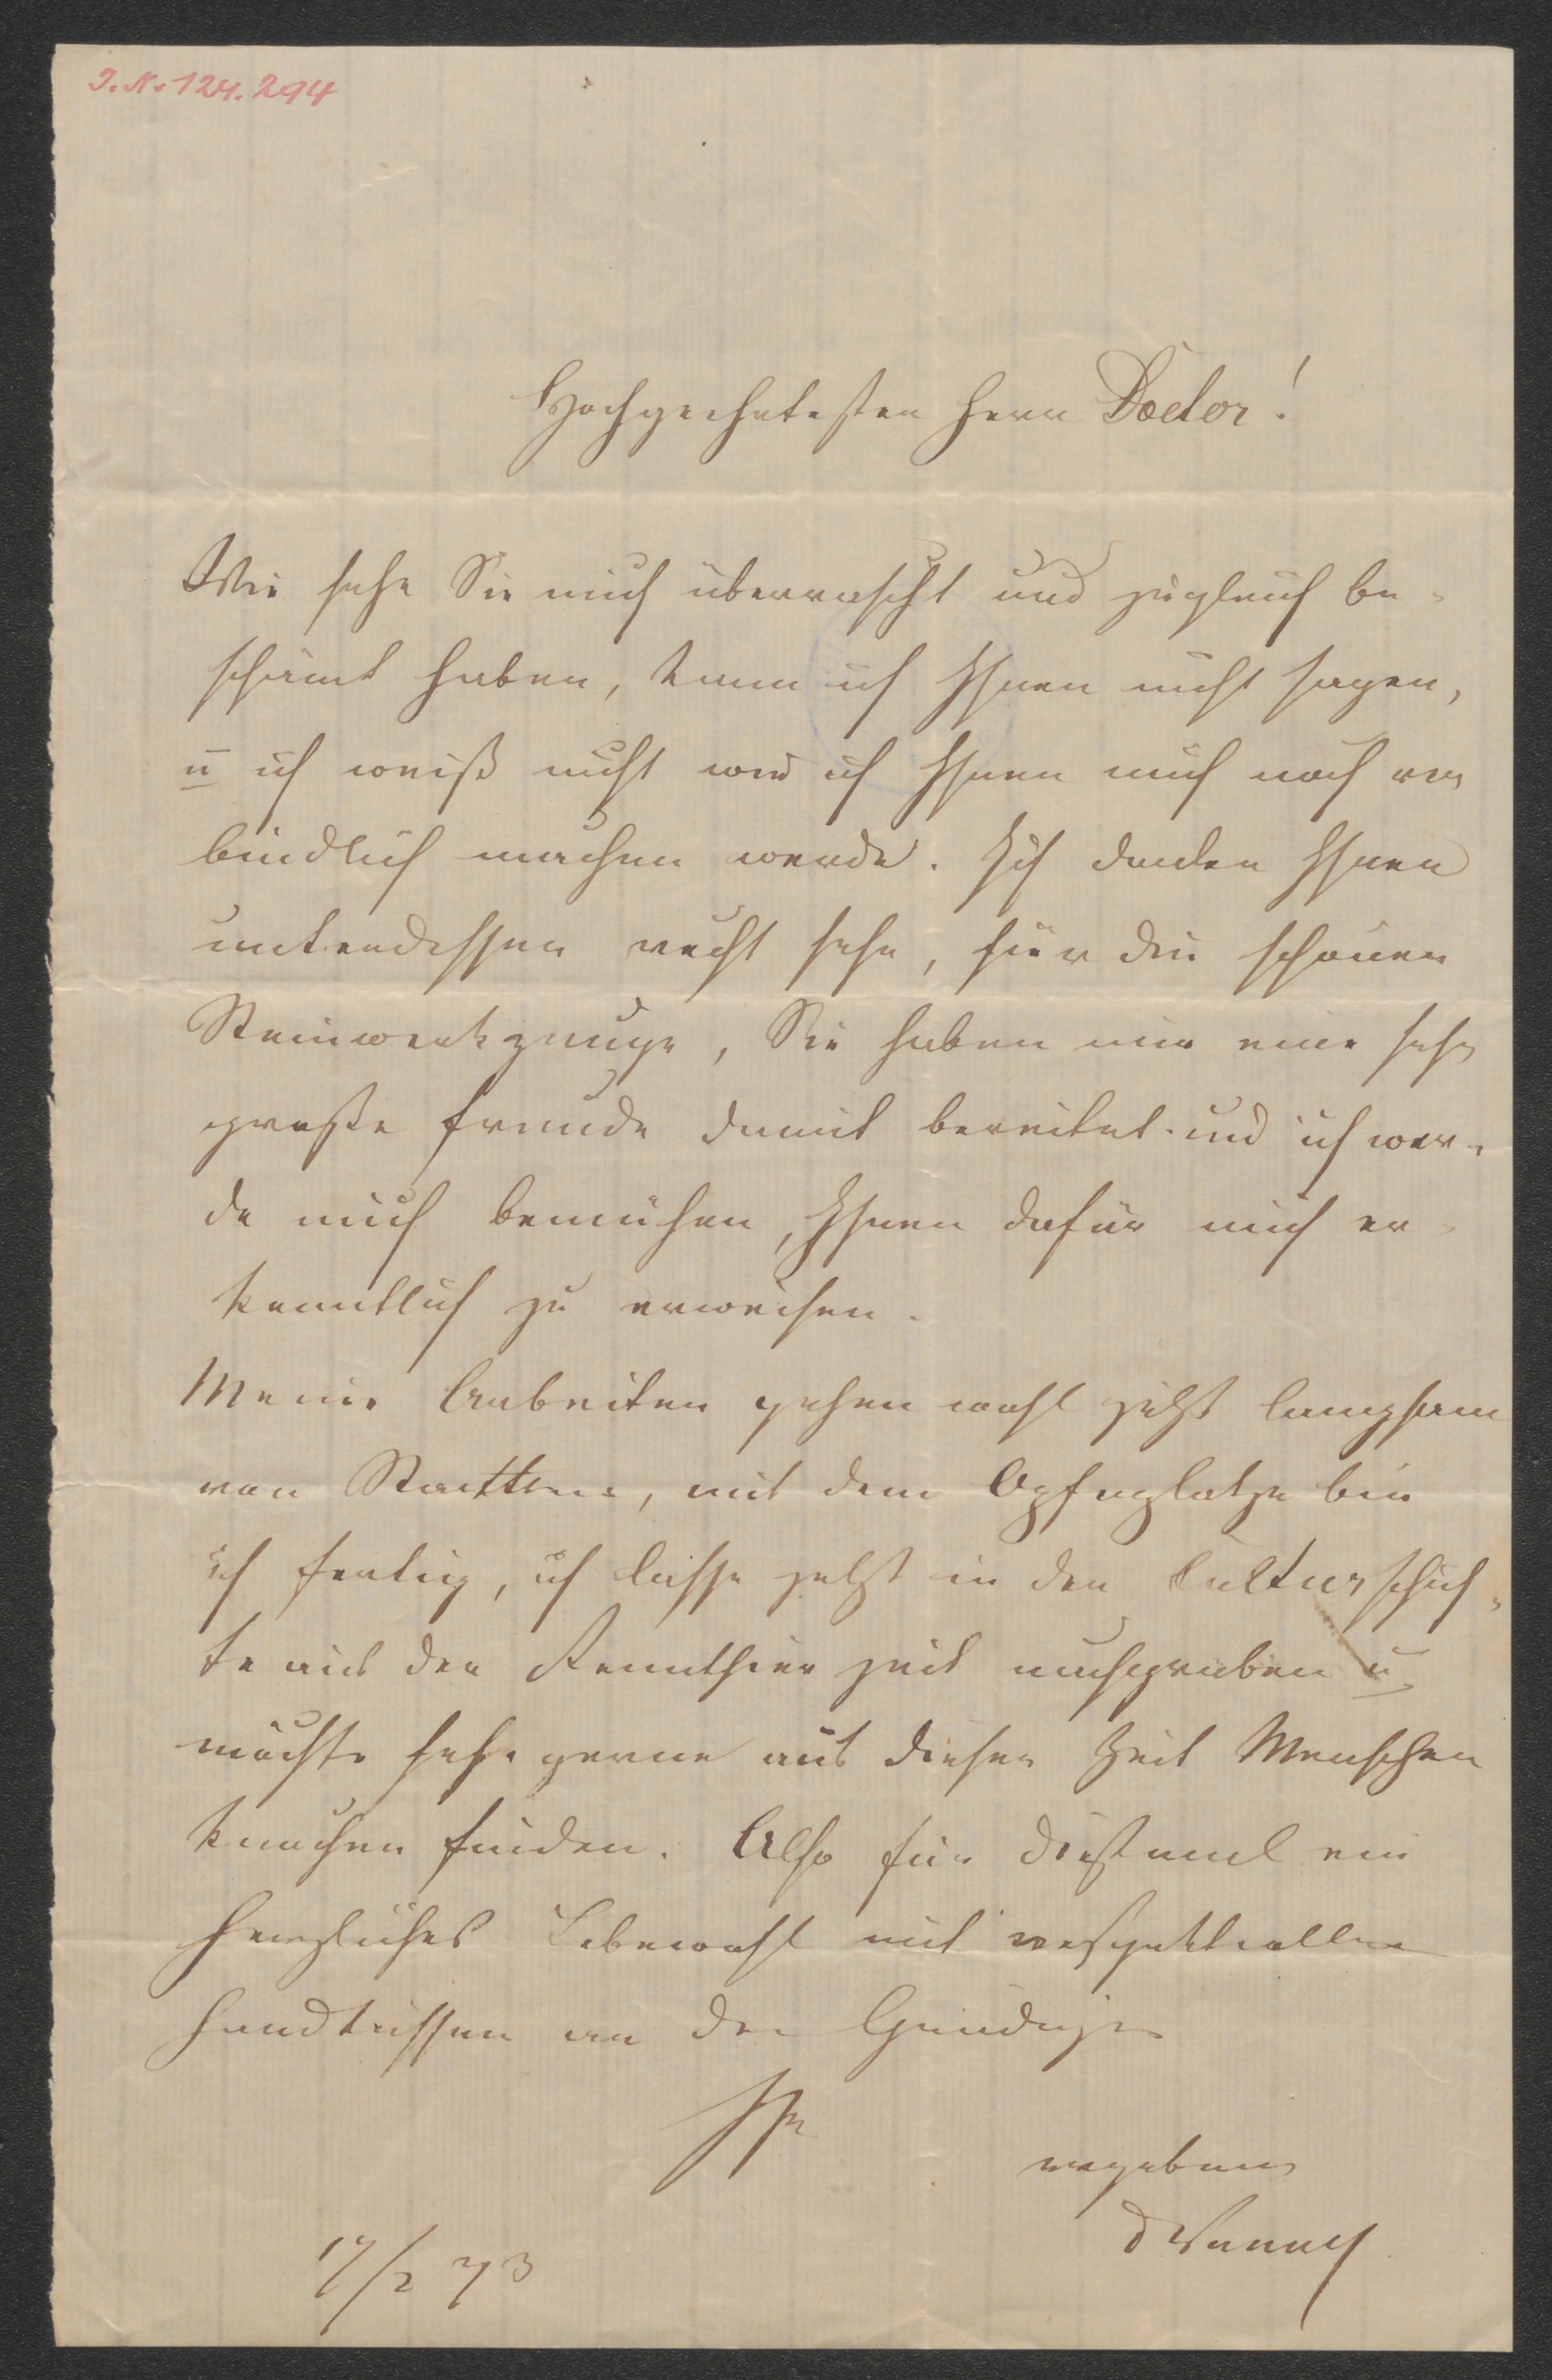 I.N. 124.294
Hochgeehrtesten Herr Doctor!
Wie sehr Sie mich überrascht und zugleich be-
schämt haben, kann ich Ihnen nicht sagen,
u ich weiß nicht wie ich Ihnen mich noch ver
bindlich machen werde. Ich danke Ihnen
unterdessen recht sehr, für die schönen
Steinwerkzeuge, Sie haben mir eine sehr
große Freude damit bereitet und ich wer-
de mich bemühen, Ihnen dafür mich er-
kenntlich zu erweisen.
Meine Arbeiten gehen wohl jetzt langsam
von Statten, mit dem Opferplatze bin
ich fertig, ich lasse jetzt in der Culturschich-
te aus der Rennthier zeit nachgraben u
möchte sehr gerne aus dieser Zeit Menschen
knochen finden. Also für diesmal ein
herzliches Lebewohl mit respektvollen
Handküssen an der Gnädigen
Ihr
ergebener
17/2 73